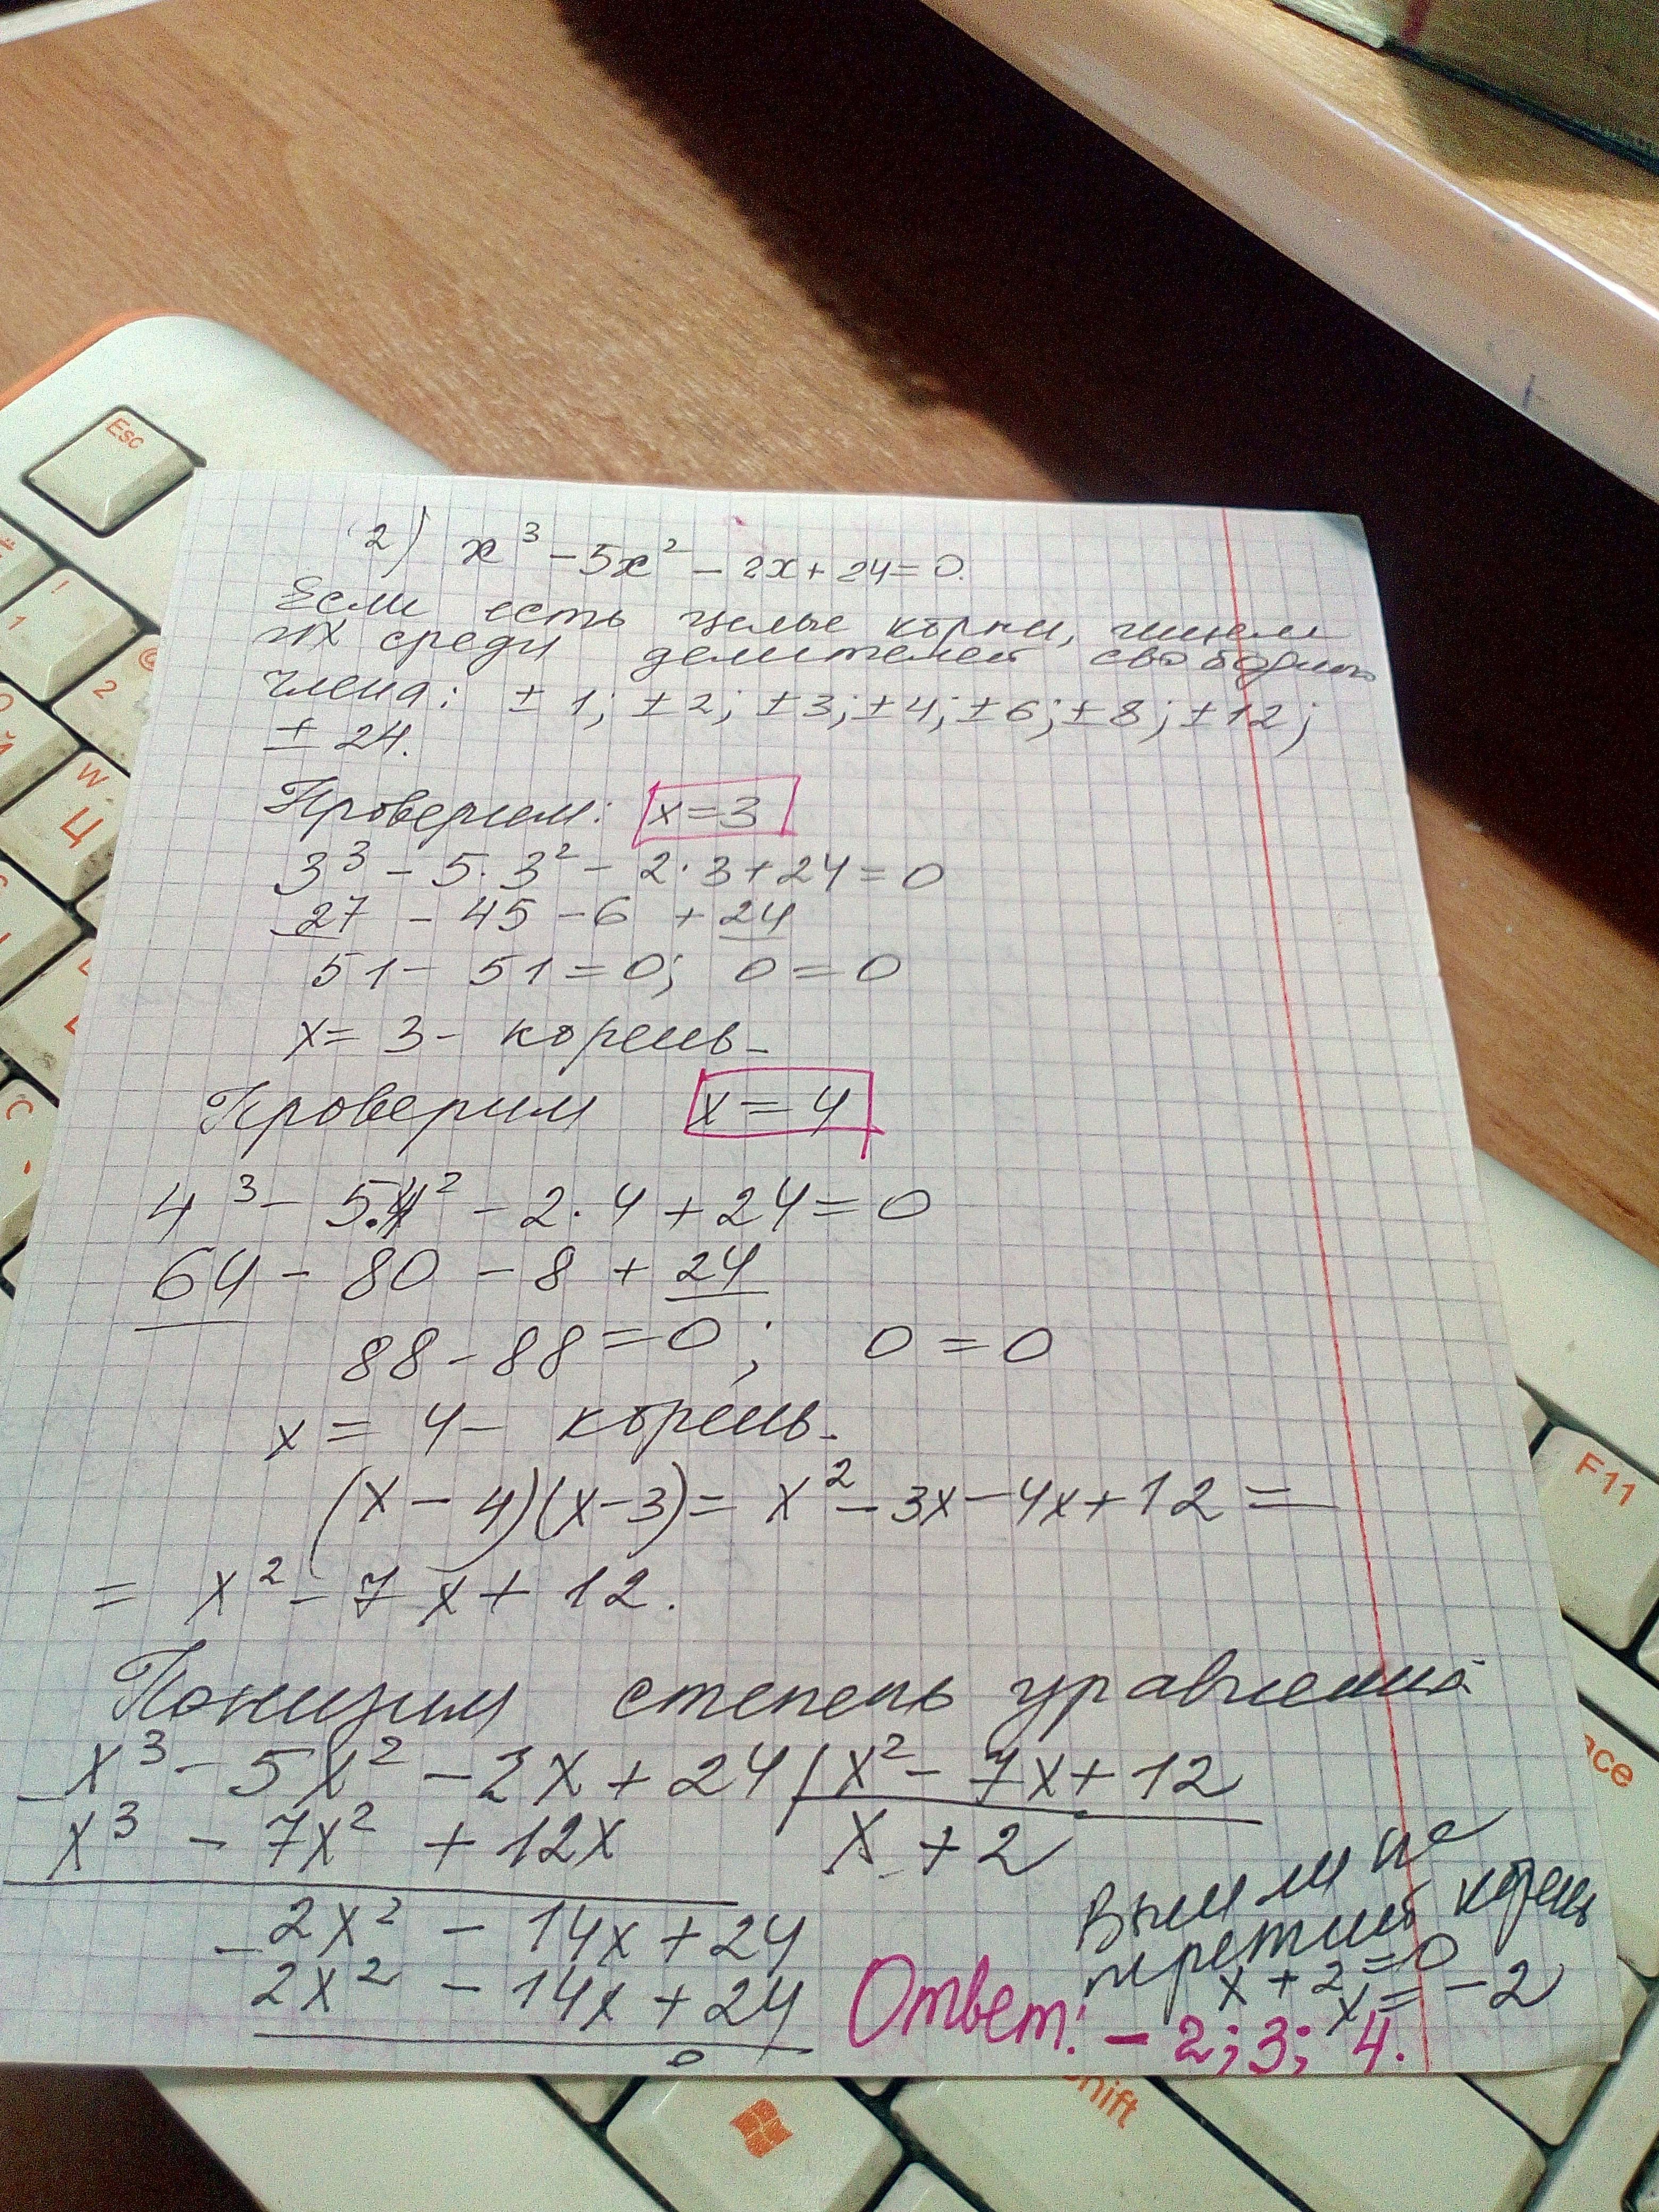 2) x³ - 5x² - 2x + 24 = 0.
Если есть целые корни, ищем
их среди делителей свободного
члена: ± 1; ± 2; ± 3; ± 4; ± 6; ± 8; ± 12;
± 24.
Проверим: x = 3
3³ - 5·3² - 2·3 + 24 = 0
27 - 45 - 6 + 24
51 - 51 = 0; 0 = 0
x = 3 - корень.
Проверим x = 4
4³ - 5·4² - 2·4 + 24 = 0
64 - 80 - 8 + 24
88 - 88 = 0; 0 = 0
x = 4 - корень.
(x - 4)(x - 3) = x² - 3x - 4x + 12 =
= x² - 7x + 12.
Понизим степень уравнения
x³ - 5x² - 2x + 24 | x² - 7x + 12
x³ - 7x² + 12x x + 2
2x² - 14x + 24
2x² - 14x + 24
0
третий корень
x + 2 = 0
x = -2
Ответ: -2; 3; 4.
Esc
!
1
@
2
W
Ц
F11
ace
hift